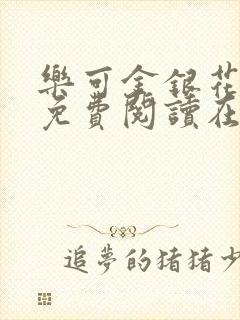 樂可金銀花
免費閱讀在
追夢的猪猪少